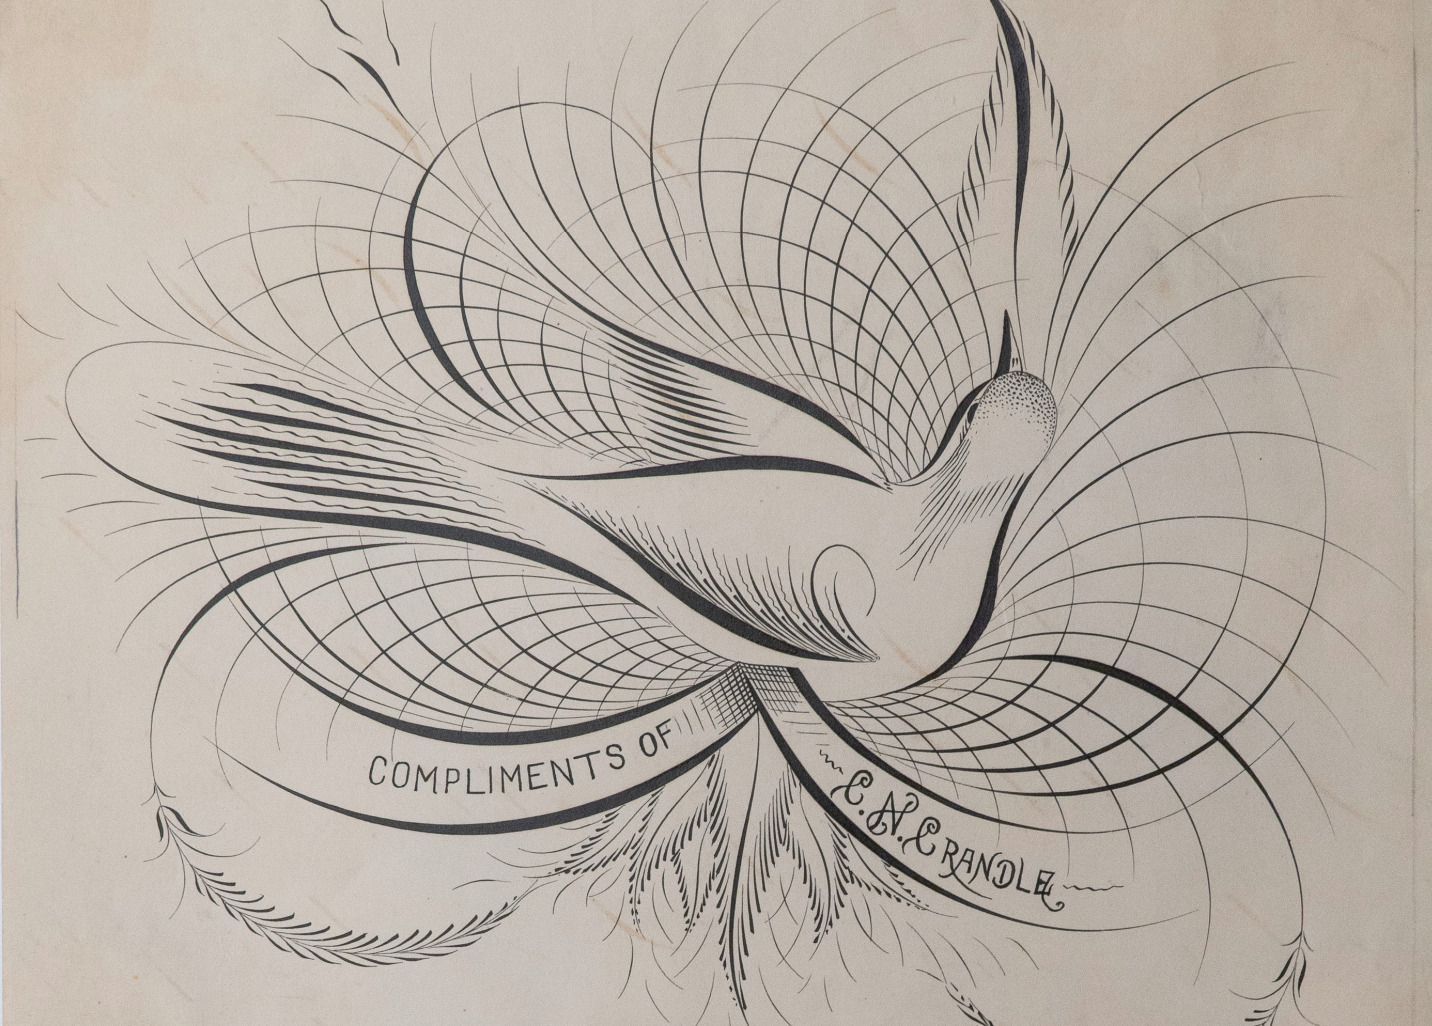 COMPLIMENTS OF
C. N. CRANDLE